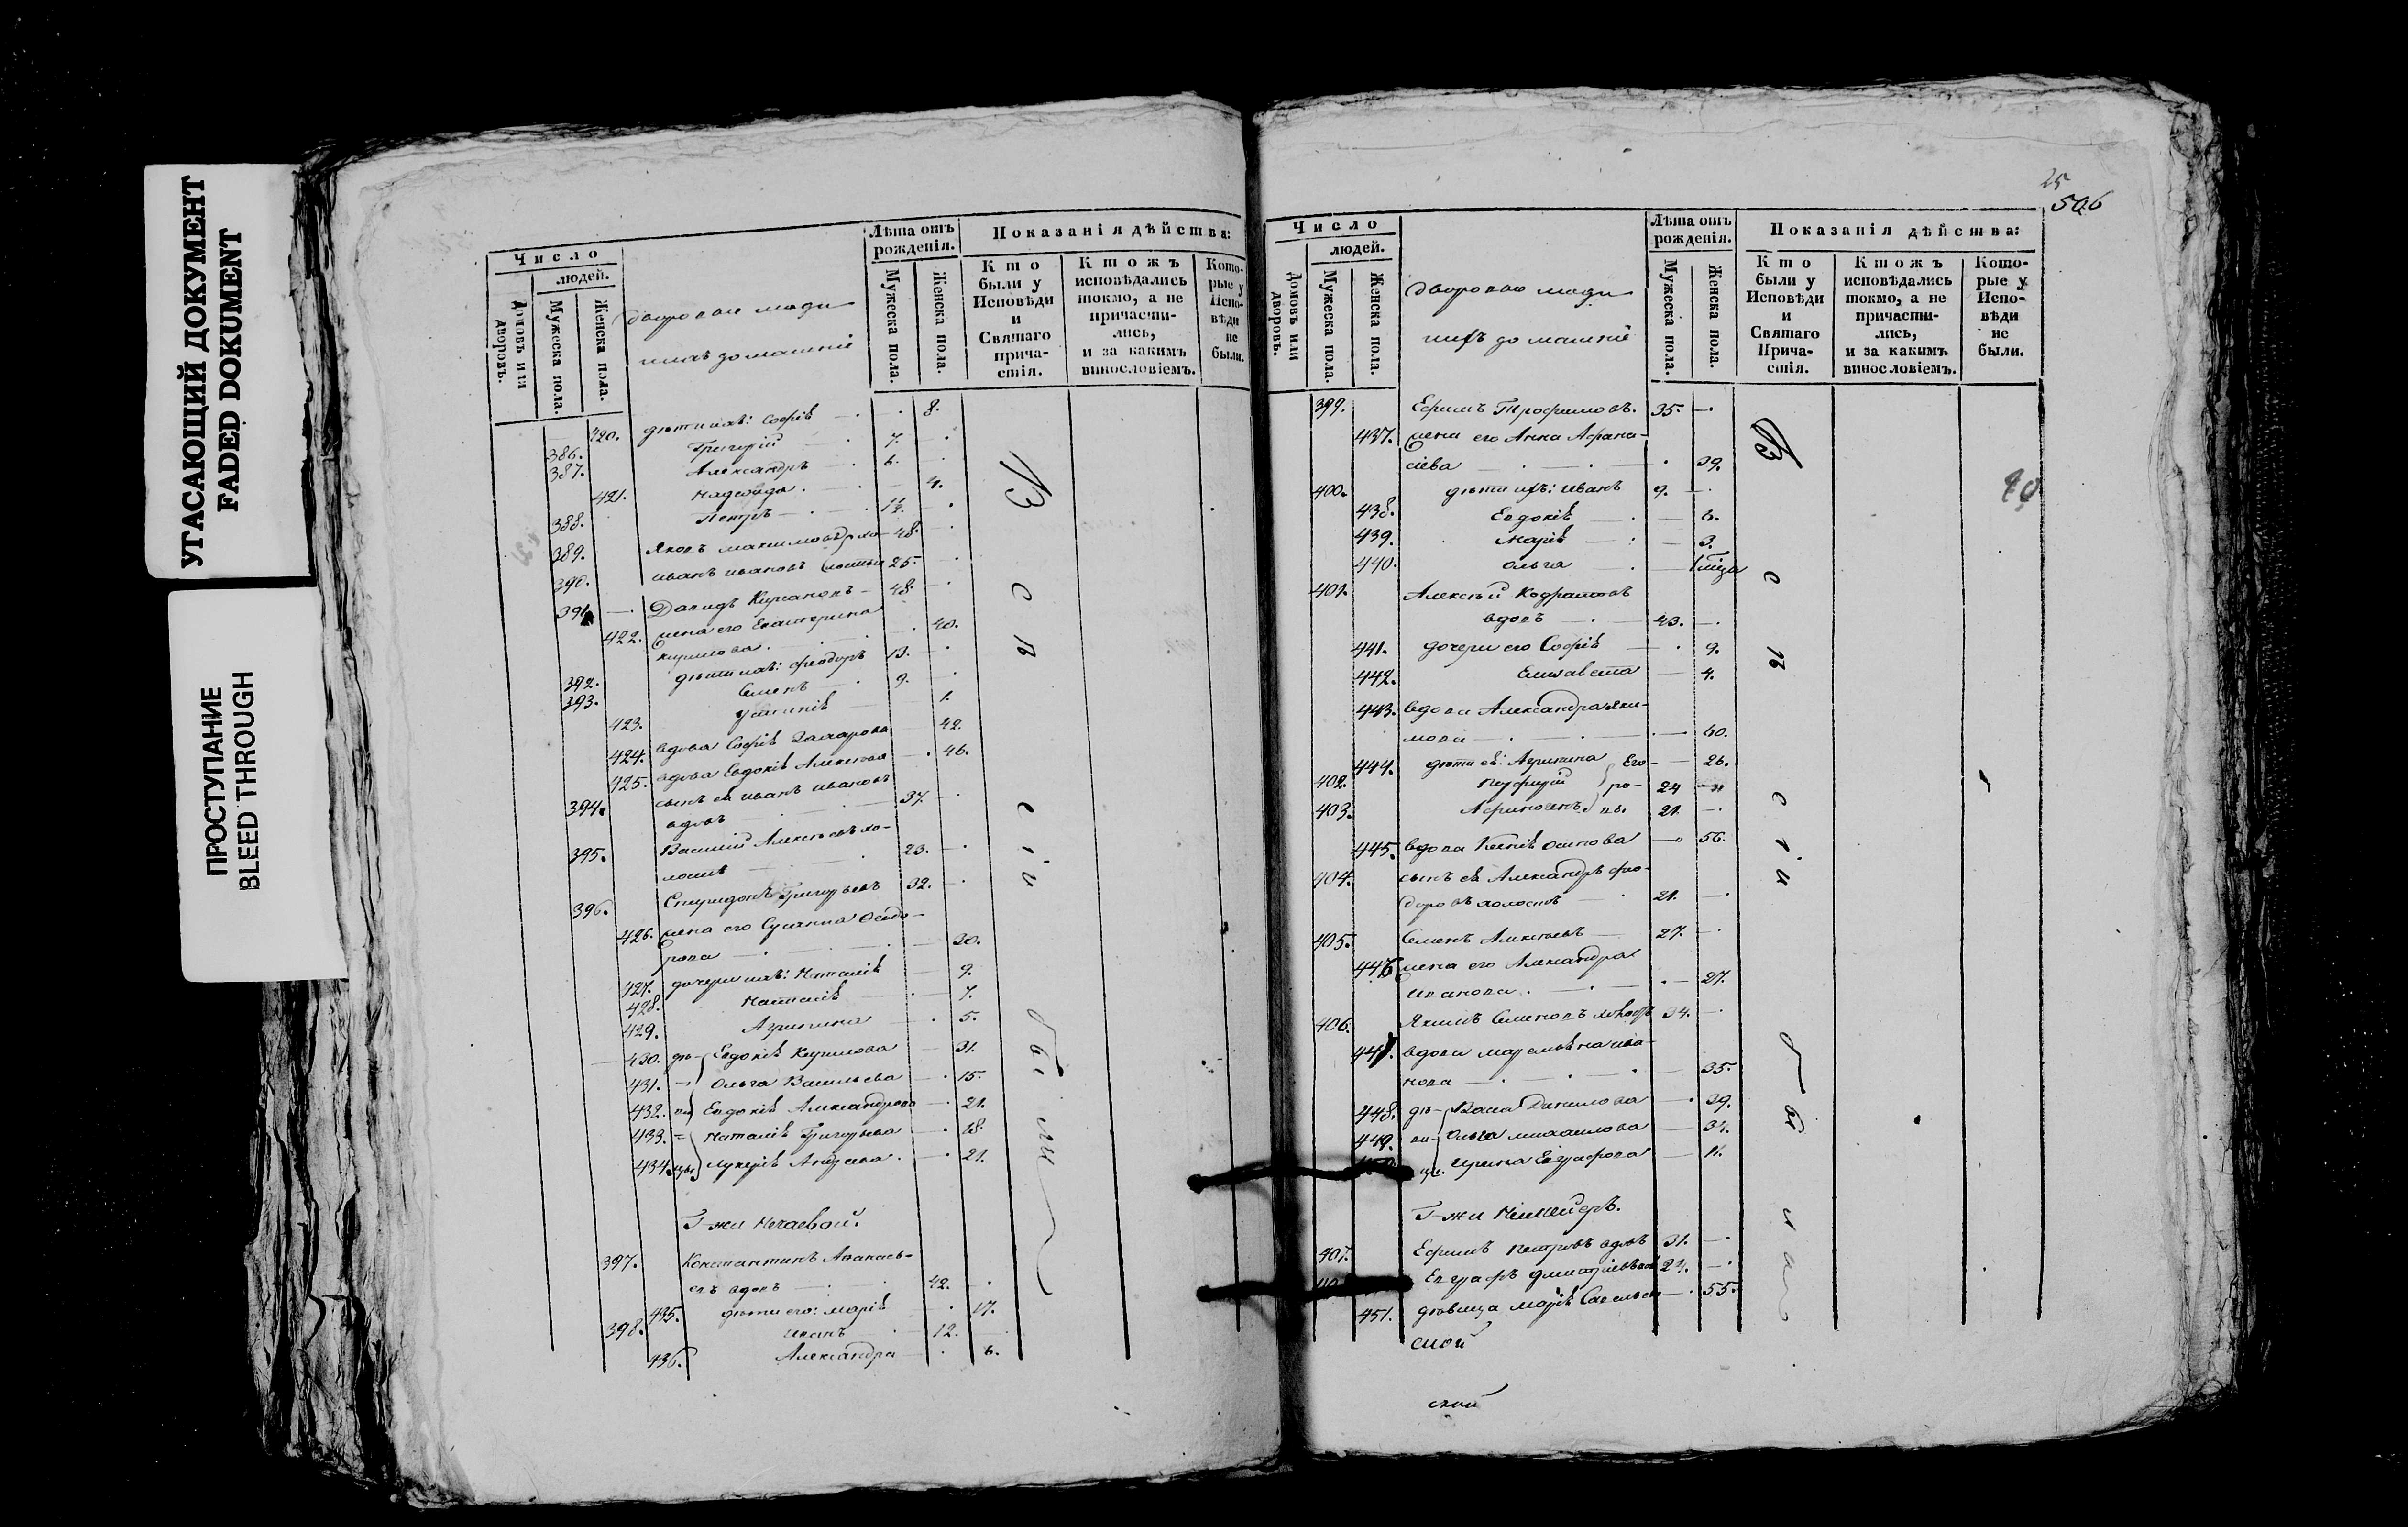 УГАСАЮЩИЙ ДОКУМЕНТ
FADED DOKUMENT
ПРОСТУПАНИЕ
BLEED THROUGH
Число
людей.
Домовъ или дворовъ.
Мужеска пола.
Женска пола.
дворовые люди
ихъ домашніе
Лѣта отъ рожденія.
Мужеска пола.
Женска пола.
Показанія дѣйства:
Кто были у Исповѣди и Святаго прича-стія.
Ктожъ исповѣдались токмо, а не причасти-лись, и за какимъ винословіемъ.
Кото-рые у Испо-вѣди не были.
420. дѣти ихъ: Софія 8.
386. Григорій 7.
387. Александръ 6.
421. Надежда 4.
388. Петръ 1½.
389. Яковъ Максимовъ 48.
390. Иванъ Ивановъ 25.
391. Давидъ 48.
422. жена его Екатерина
Кирилова 40.
392. дѣти ихъ: Феодоръ 13.
393. Семенъ 9.
423. Устинія 1.
424. вдова Софія Захарова 42.
425. вдова Евдокія Алексѣева 46.
394. сынъ ея Иванъ Ивановъ
вдовъ 37.
395. Василій Алексѣевъ хо-
лостъ 23.
396. Спиридонъ Григорьевъ 32.
426. жена его Сусанна Феодо-
рова 30.
427. дочери ихъ: Наталія 9.
428. Наталія 7.
429. Агрипина 5.
430. дѣ- Евдокія Кирилова 31.
431. Ольга Васильева 15.
432. ви Евдокія Александрова 21.
433. Наталія Григорьева 18.
434. цы Лукерія Андреева 21.
Г-жи Нечаевой.
397. Константинъ Афанась-
евъ вдовъ 42.
435. дѣти его: Марія 17.
398. Иванъ 12.
436. Александра 6.
В с в с і и б ы л и
25
506
Число
людей.
Домовъ или дворовъ.
Мужеска пола.
Женска пола.
дворовые люди
ихъ домашніе
Лѣта отъ рожденія.
Мужеска пола.
Женска пола.
Показанія дѣйства:
Кто были у Исповѣди и Святаго Прича-стія.
Ктожъ исповѣдались токмо, а не причасти-лись, и за какимъ винословіемъ.
Кото-рые у Испо-вѣди не были.
399. Ефимъ Трофимовъ. 35.
437. жена его Анна Афана-
сіева 39.
400. дѣти ихъ: Иванъ 9.
438. Евдокія 6.
439. Марія 3.
440. Ольга
401. Алексѣй Кодратовъ
вдовъ 43.
441. дочери его Софія 9.
442. Елисавета 4.
443. вдова Александра Яки-
мова 60.
444. дѣти ея: Агрипина 26.
402. Порфирій 24
403. 21.
Его- ро- вы
445. вдова Ксенія Осипова 56.
404. сынъ ея Александръ Фео-
доровъ холостъ 21.
405. Семенъ Алексѣевъ 27.
446 жена его Александра
Иванова 27.
406. Якимъ Семеновъ 34.
447. вдова Ива-
нова 35.
448. дѣ- Данилова 39.
449. ви- Ольга Михаилова 34.
цы. Ирина Евграфова 11.
Г-жи
407. Ефимъ Петровъ вдовъ 31.
Евграфъ 24.
451. дѣвица Марія Савельева 55.
ской
ской